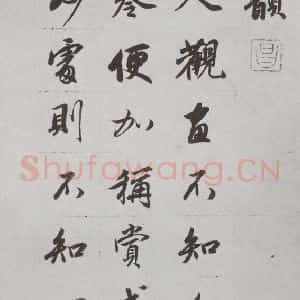 韻
人觀畫不知
卷便加稱賞或
妙處則不知
Shufawang.CN